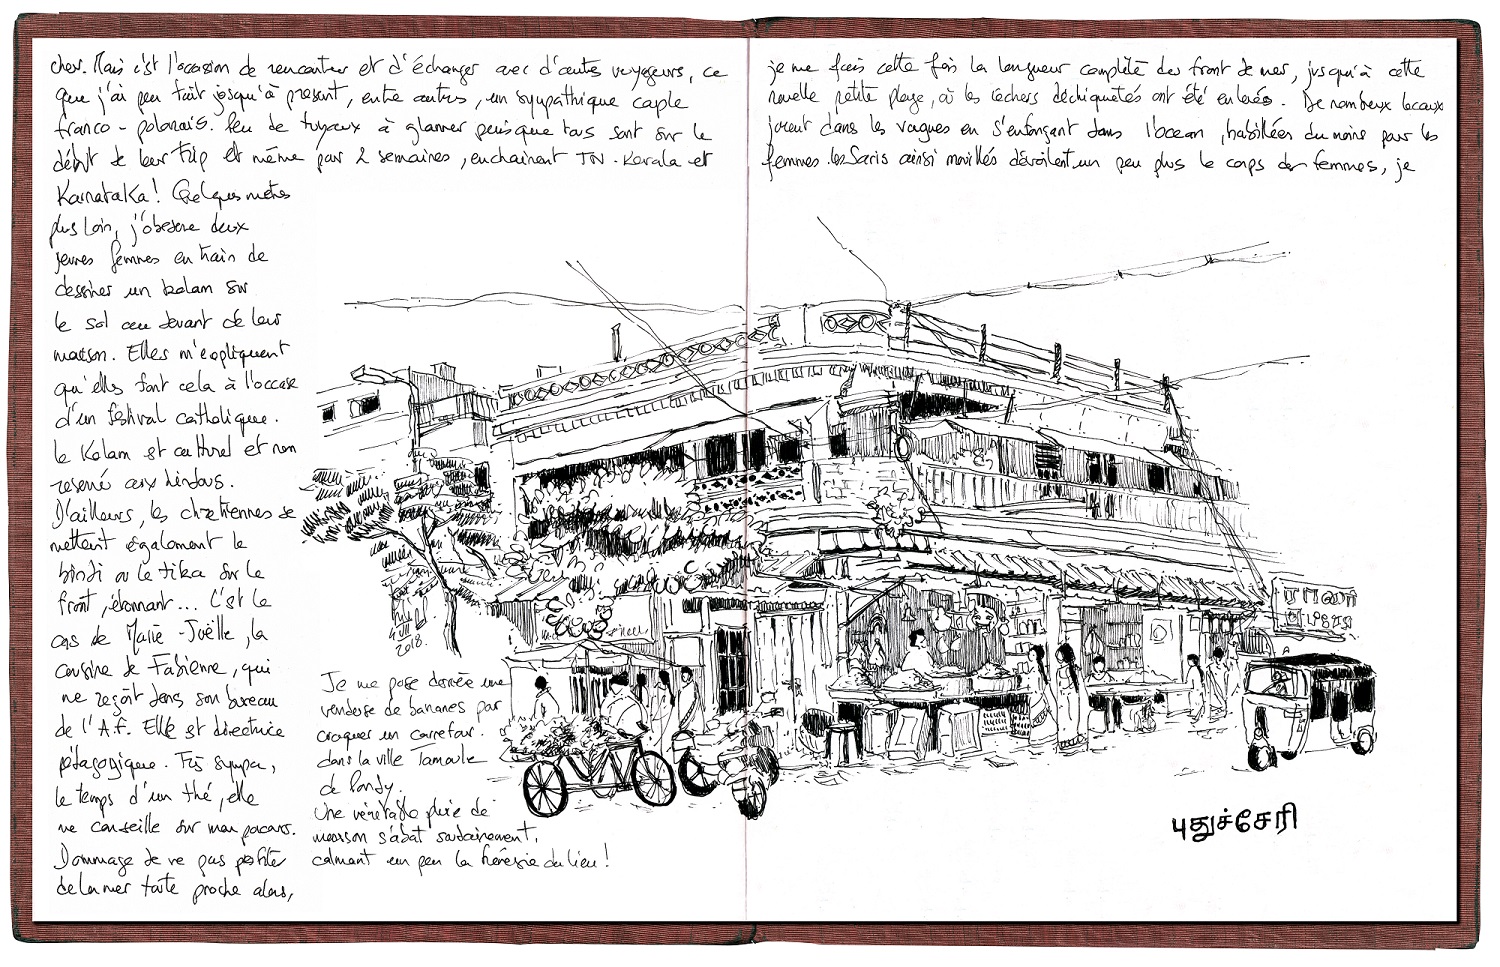 cher. Mais c'est l'occasion de rencontrer et d'échanger avec d'autres voyageurs, ce
que j'ai peu fait jusqu'à présent, entre autres, un sympathique couple
franco-polonais. Peu de tuyaux à glaner puisque tous sont sur le
début de leur trip et même par 2 semaines, enchainent TN-Kerala et
Karnataka! Quelques mètres
plus loin, j'observe deux
jeunes femmes en train de
dessiner un kolam sur
le sol au devant de leur
maison. Elles m'expliquent
qu'elles font cela à l'occase
d'un festival catholique.
Le Kolam est culturel et non
réservé aux hindous.
D'ailleurs, les chrétiennes se
mettent également le
bindi ou le tika sur le
front, étonnant... C'est le
cas de Marie-Joëlle, la
cousine de Fabienne, qui
me reçoit dans son bureau
de l'A.F. Elle est directrice
pédagogique. Très sympa,
le temps d'un thé, elle
me conseille sur mon parcours.
Dommage de ne pas profiter
de la mer toute proche alors,
2018.
Je me pose derrière une
vendeuse de bananes par
croquer un carrefour.
dans la ville Tamoule
de Pondy.
Une véritable pluie de
mousson s'abat soudainement,
calmant un peu la frénésie du lieu!
je me fais cette fois la longueur complète du front de mer, jusqu'à cette
nouvelle petite plage, où les rochers déchiquetés ont été enlevés. De nombreux locaux
jouent dans les vagues en s'enfonçant dans l'ocean, habillées du moins pour les
femmes. Les Saris ainsi mouillés dévoilent un peu plus le corps des femmes, je
புதுச்சேரி